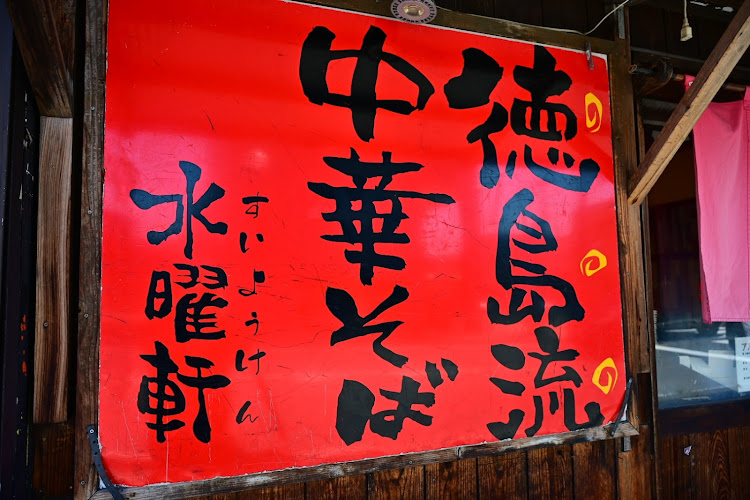 徳島流
中華そば
すいようけん
水曜軒